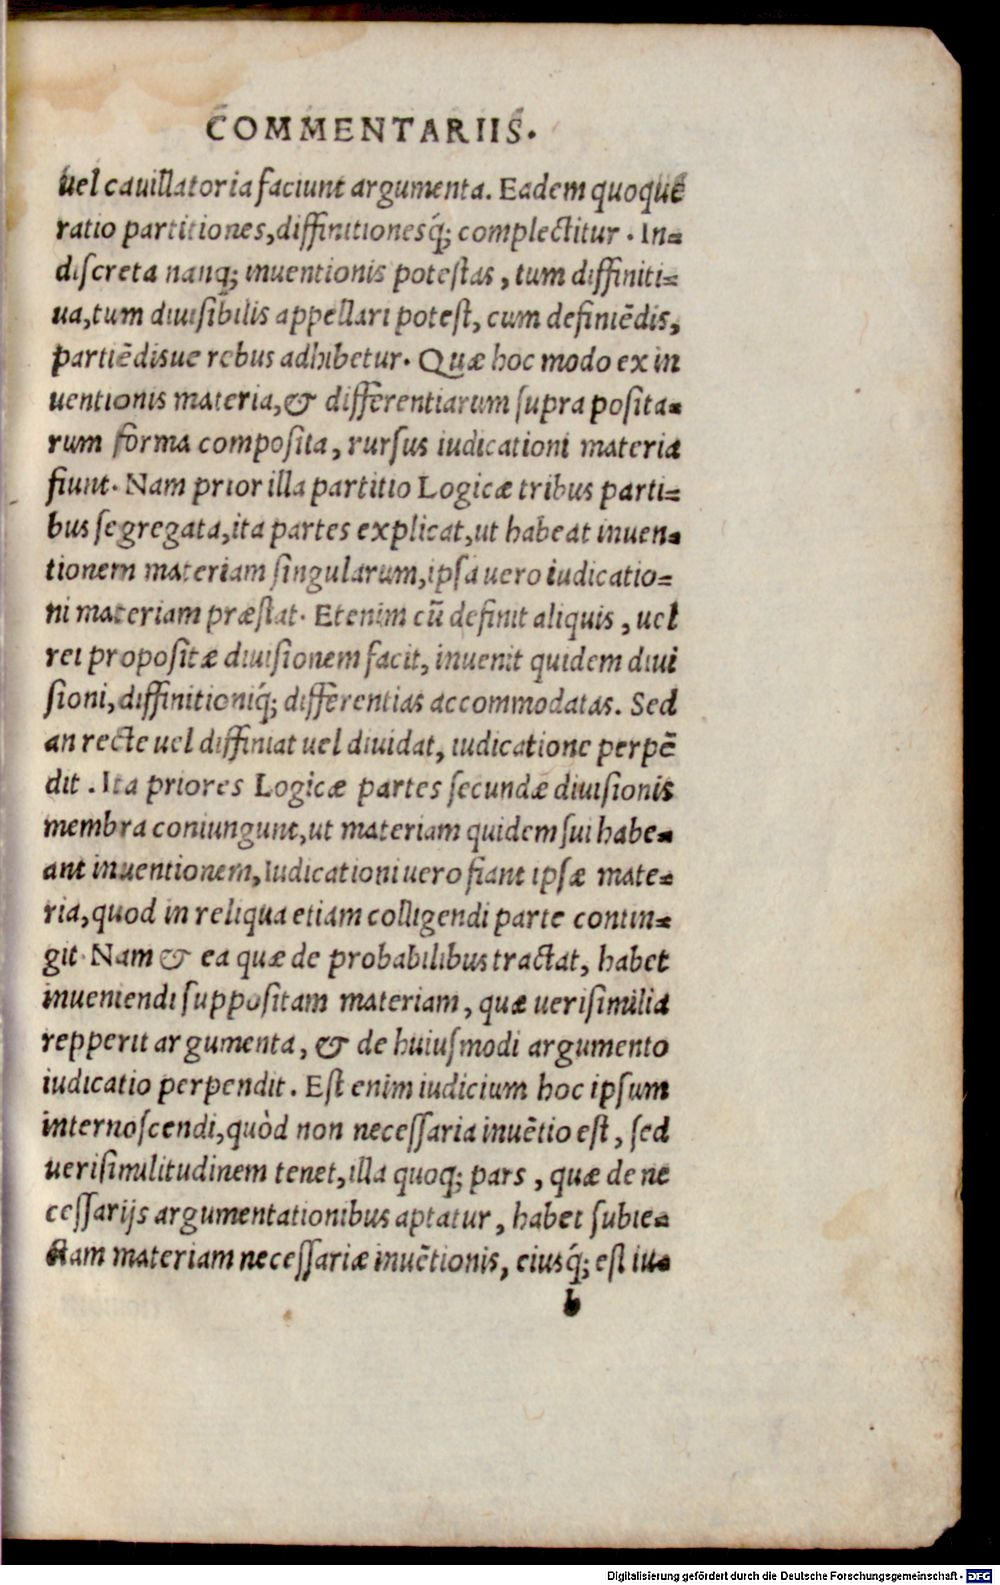 COMMENTARIIS.
uel cauillatoria faciunt argumenta. Eadem quoque
ratio partitiones, diffinitionesq́; complectitur. In=
discreta nanq; inuentionis potestas, tum diffiniti=
ua, tum diuisibilis appellari potest, cum definiẽdis,
partiẽdisue rebus adhibetur. Quæ hoc modo ex in
uentionis materia, & differentiarum supra posita=
rum forma composita, rursus iudicationi materia
fiunt. Nam prior illa partitio Logicæ tribus parti=
bus segregata, ita partes explicat, ut habeat inuen=
tionem materiam singularum, ipsa uero iudicatio=
ni materiam præstat. Etenim cũ definit aliquis, uel
rei propositæ diuisionem facit, inuenit quidem diui
sioni, diffinitioniq́; differentias accommodatas. Sed
an recte uel diffiniat uel diuidat, iudicatione perpẽ
dit. Ita priores Logicæ partes secundæ diuisionis
membra coniungunt, ut materiam quidem sui habe=
ant inuentionem, Iudicationi uero fiant ipsæ mate=
ria, quod in reliqua etiam colligendi parte contin=
git. Nam & ea quæ de probabilibus tractat, habet
inueniendi suppositam materiam, quæ uerisimilia
repperit argumenta, & de huiusmodi argumento
iudicatio perpendit. Est enim iudicium hoc ipsum
internoscendi, quòd non necessaria inuẽtio est, sed
uerisimilitudinem tenet, illa quoq; pars, quæ de ne
cessarijs argumentationibus aptatur, habet subie=
ctam materiam necessariæ inuẽtionis, eiusq́; est iu=
b
Digitalisierung gefördert durch die Deutsche Forschungsgemeinschaft - DFG